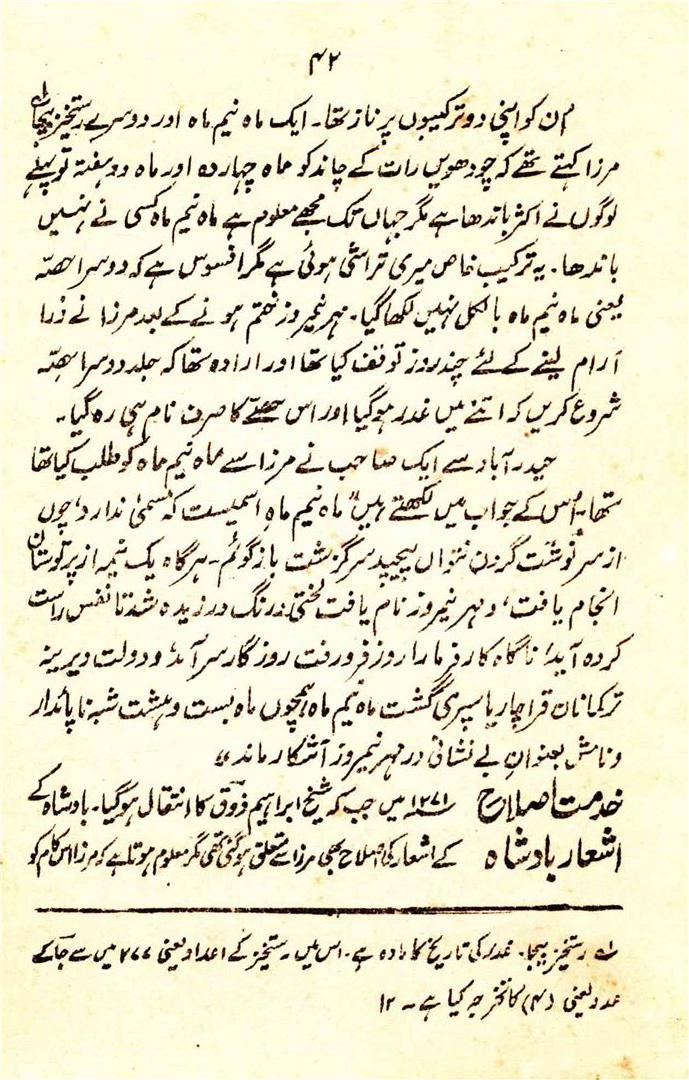 ۴۲
ان کو اپنی دو ترکیبوں پر ناز تھا۔ ایک ماہ نیم ماہ اور دوسرے رستخیز بیجا۔
مرزا کہتے تھے کہ چودھویں رات کے چاند کو ماہ چہاردہ اور ماہ دو ہفتہ تو پہلے
لوگوں نے اکثر باندھا ہے مگر جہاں تک مجھے معلوم ہے ماہ نیم ماہ کسی نے نہیں
باندھا۔ یہ ترکیب خاص میری تراشی ہوئی ہے مگر افسوس ہے کہ دوسرا حصّہ
یعنی ماہ نیم ماہ بالکل نہیں لکھا گیا۔ مہر نیمروز ختم ہونے کے بعد مرزا نے ذرا
آرام لینے کے لئے چند روز توقف کیا تھا اور ارادہ تھا کہ جلد دوسرا حصّہ
شروع کریں کہ اتنے میں غدر ہوگیا اور اس حصّے کا صرف نام ہی رہ گیا۔
حیدرآباد سے ایک صاحب نے مرزا سے ماہ نیم ماہ کو طلب کیا تھا
تھا۔ اُس کے جواب میں لکھتے ہیں "ماہ نیم ماہ اسمیست کہ مسمیٰ ندارد، چوں
از سرنوشت گردن نتواں پیچید سرگزشت باز گوئم۔ ہرگاہ یک نیمہ از پرتوستان
انجام یافت، و مہر نیمروز نام یافت لختی درنگ ورزیدہ شد تا نفس راست
کردہ آید، ناگاہ کارفرما را روز فرورفت روزگار سرآمد، و دولت دیرینہ
ترکمانان قراچار یا سپری گشت ماہ نیم ماہ ہمچوں ماہ بست و ہشت شبہ ناپائدار
و نامش بعنوان بے نشانی در مہر نیمروز آشکار ماند"
خدمت اصلاح ۱۲۷۱ھ میں جب کہ شیخ ابراہیم ذوق کا انتقال ہوگیا۔ بادشاہ کے
اشعار بادشاہ کے اشعار کی اصلاح بھی مرزا سے متعلق ہوگئی تھی مگر معلوم ہوتا ہے کہ مرزا اس کام کو
لہ رستخیز بیجا۔ غدر کی تاریخ کا مادہ ہے۔ اس میں رستخیز کے اعداد یعنی ۱۲۷۷ میں سے جا کے
عدد یعنی (۴) کا تخرجہ کیا ہے۔ ۱۲